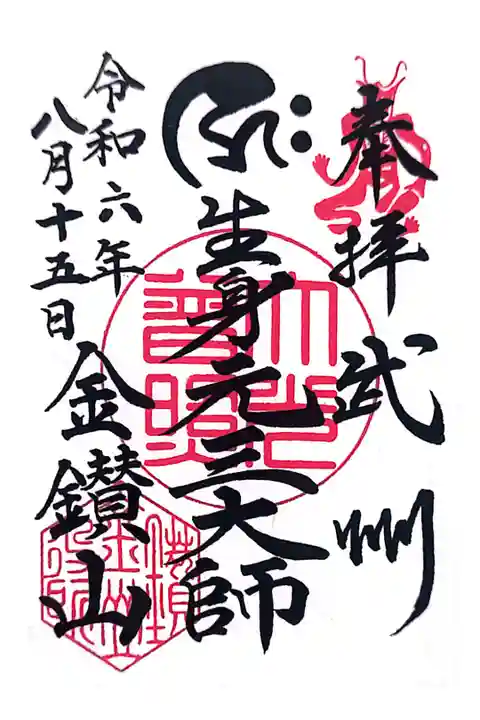 奉拝 武州
生身元三大師
大光
普照
令和六年
八月十五日
金鑚山